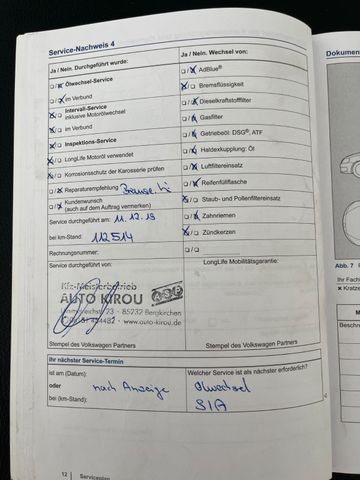 Service-Nachweis 4
Ja / Nein. Durchgeführt wurde:
Ölwechsel-Service
im Verbund
Intervall-Service
inklusive Motorölwechsel
im Verbund
Inspektions-Service
LongLife Motoröl verwendet
Korrosionsschutz der Karosserie prüfen
Reparaturempfehlung
Kundenwunsch
(auch auf dem Auftrag vermerken)
Service durchgeführt am: 11.12.19
bei km-Stand: 112514
Rechnungsnummer:
Service durchgeführt von:
Kfz-Meisterbetrieb
AUTO KIROU
23 · 85232 Bergkirchen
454482 · www.auto-kirou.de
Stempel des Volkswagen Partners
Ja / Nein. Wechsel von:
AdBlue®
Bremsflüssigkeit
Dieselkraftstofffilter
Gasfilter
Getriebeöl: DSG®, ATF
Haldexkupplung: Öl
Luftfiltereinsatz
Reifenfüllflasche
Staub- und Pollenfiltereinsatz
Zahnriemen
Zündkerzen
LongLife Mobilitätsgarantie:
Stempel des Volkswagen Partners
Ihr nächster Service-Termin
ist am (Datum):
oder nach Anzeige
bei (km-Stand):
Welcher Service ist als nächster erforderlich?
Ölwechsel
SIA
12 Serviceplan
Dokumen
Abb. 7
Ihr Fach
Kratze